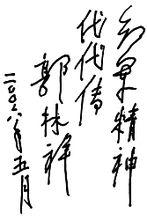 红军精神
代代传
郭林祥
二〇〇六年五月